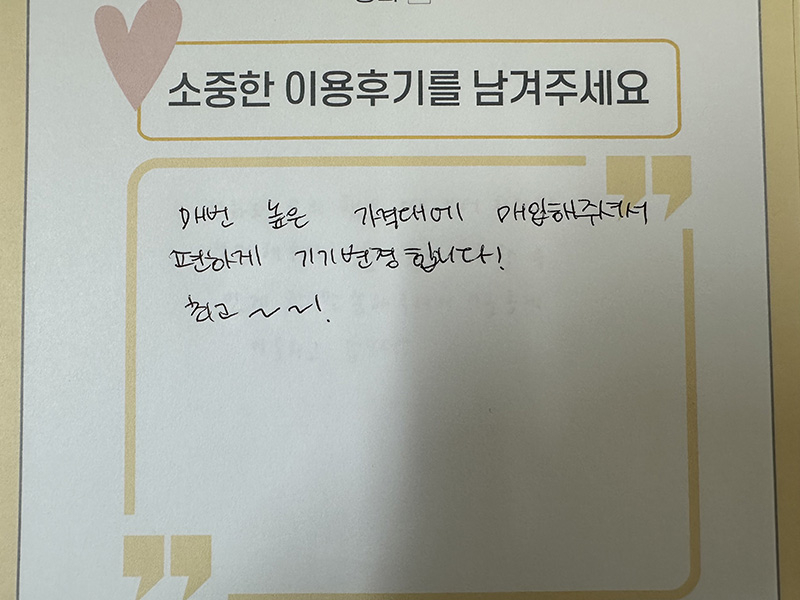 소중한 이용후기를 남겨주세요
매번 높은 가격대에 매입해주셔서
편하게 기기변경합니다!
최고~~!.